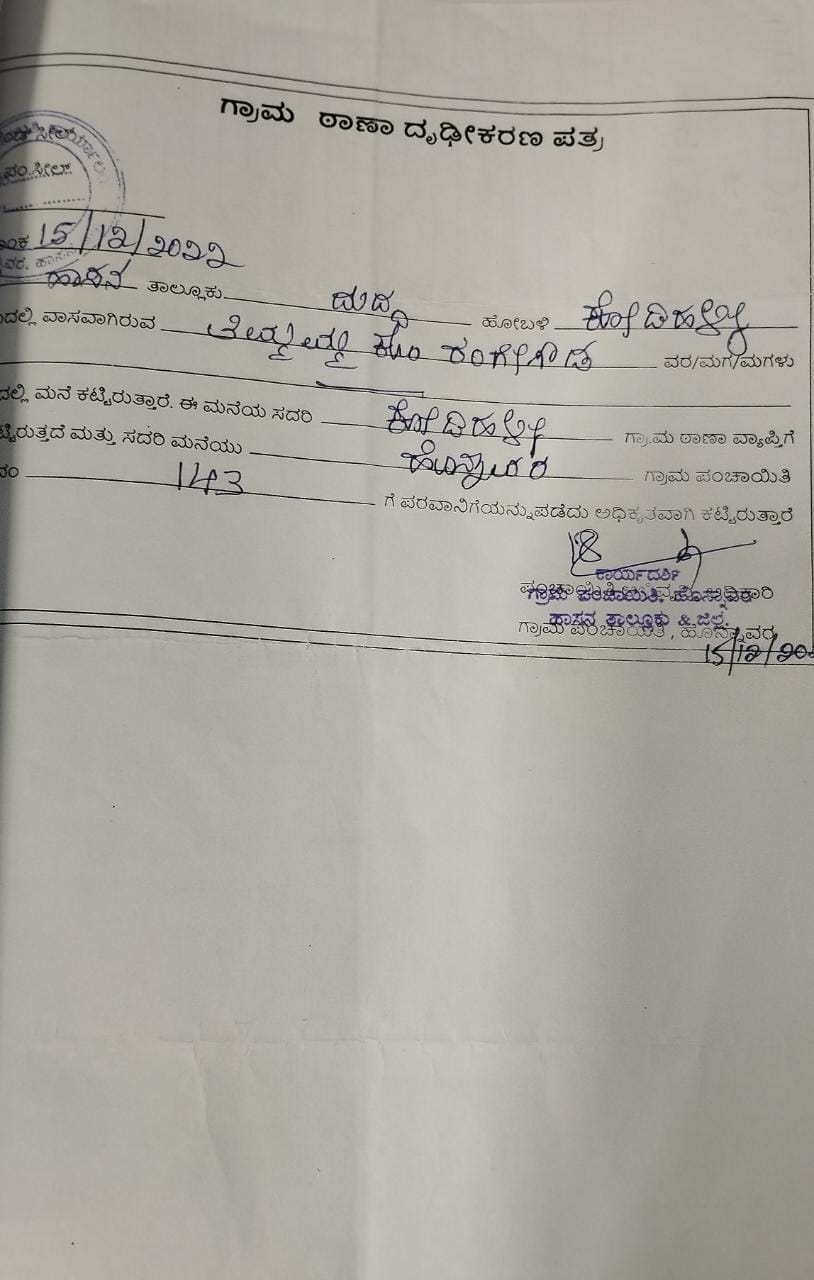 ಗ್ರಾಮ ಠಾಣಾ ದೃಢೀಕರಣ ಪತ್ರ
ಪಂ.ಸೀಲ್.
ಾಂಕ 15/12/2022
ಹಾಸನ ತಾಲ್ಲೂಕು ದುದ್ದ ಹೋಬಳಿ ಕೋಡಿಹಳ್ಳಿ
ದಲ್ಲಿ ವಾಸವಾಗಿರುವ ಕೋಂ ರಂಗೇಗೌಡ ವರ/ಮಗ/ಮಗಳು
ದಲ್ಲಿ ಮನೆ ಕಟ್ಟಿರುತ್ತಾರೆ. ಈ ಮನೆಯ ಸದರಿ ಕೋಡಿಹಳ್ಳಿ ಗ್ರಾಮ ಠಾಣಾ ವ್ಯಾಪ್ತಿಗೆ
ಟ್ಟಿರುತ್ತದೆ ಮತ್ತು ಸದರಿ ಮನೆಯು ಹೊನ್ನಾವರ ಗ್ರಾಮ ಪಂಚಾಯಿತಿ
ನಂ 143 ಗೆ ಪರವಾನಿಗೆಯನ್ನು ಪಡೆದು ಅಧಿಕೃತವಾಗಿ ಕಟ್ಟಿರುತ್ತಾರೆ
ಕಾರ್ಯದರ್ಶಿ
ಹಾಸನ ತಾಲ್ಲೂಕು & ಜಿಲ್ಲೆ.
ಗ್ರಾಮ ಪಂಚಾಯಿತಿ, ಹೊನ್ನಾವರ
15/12/20